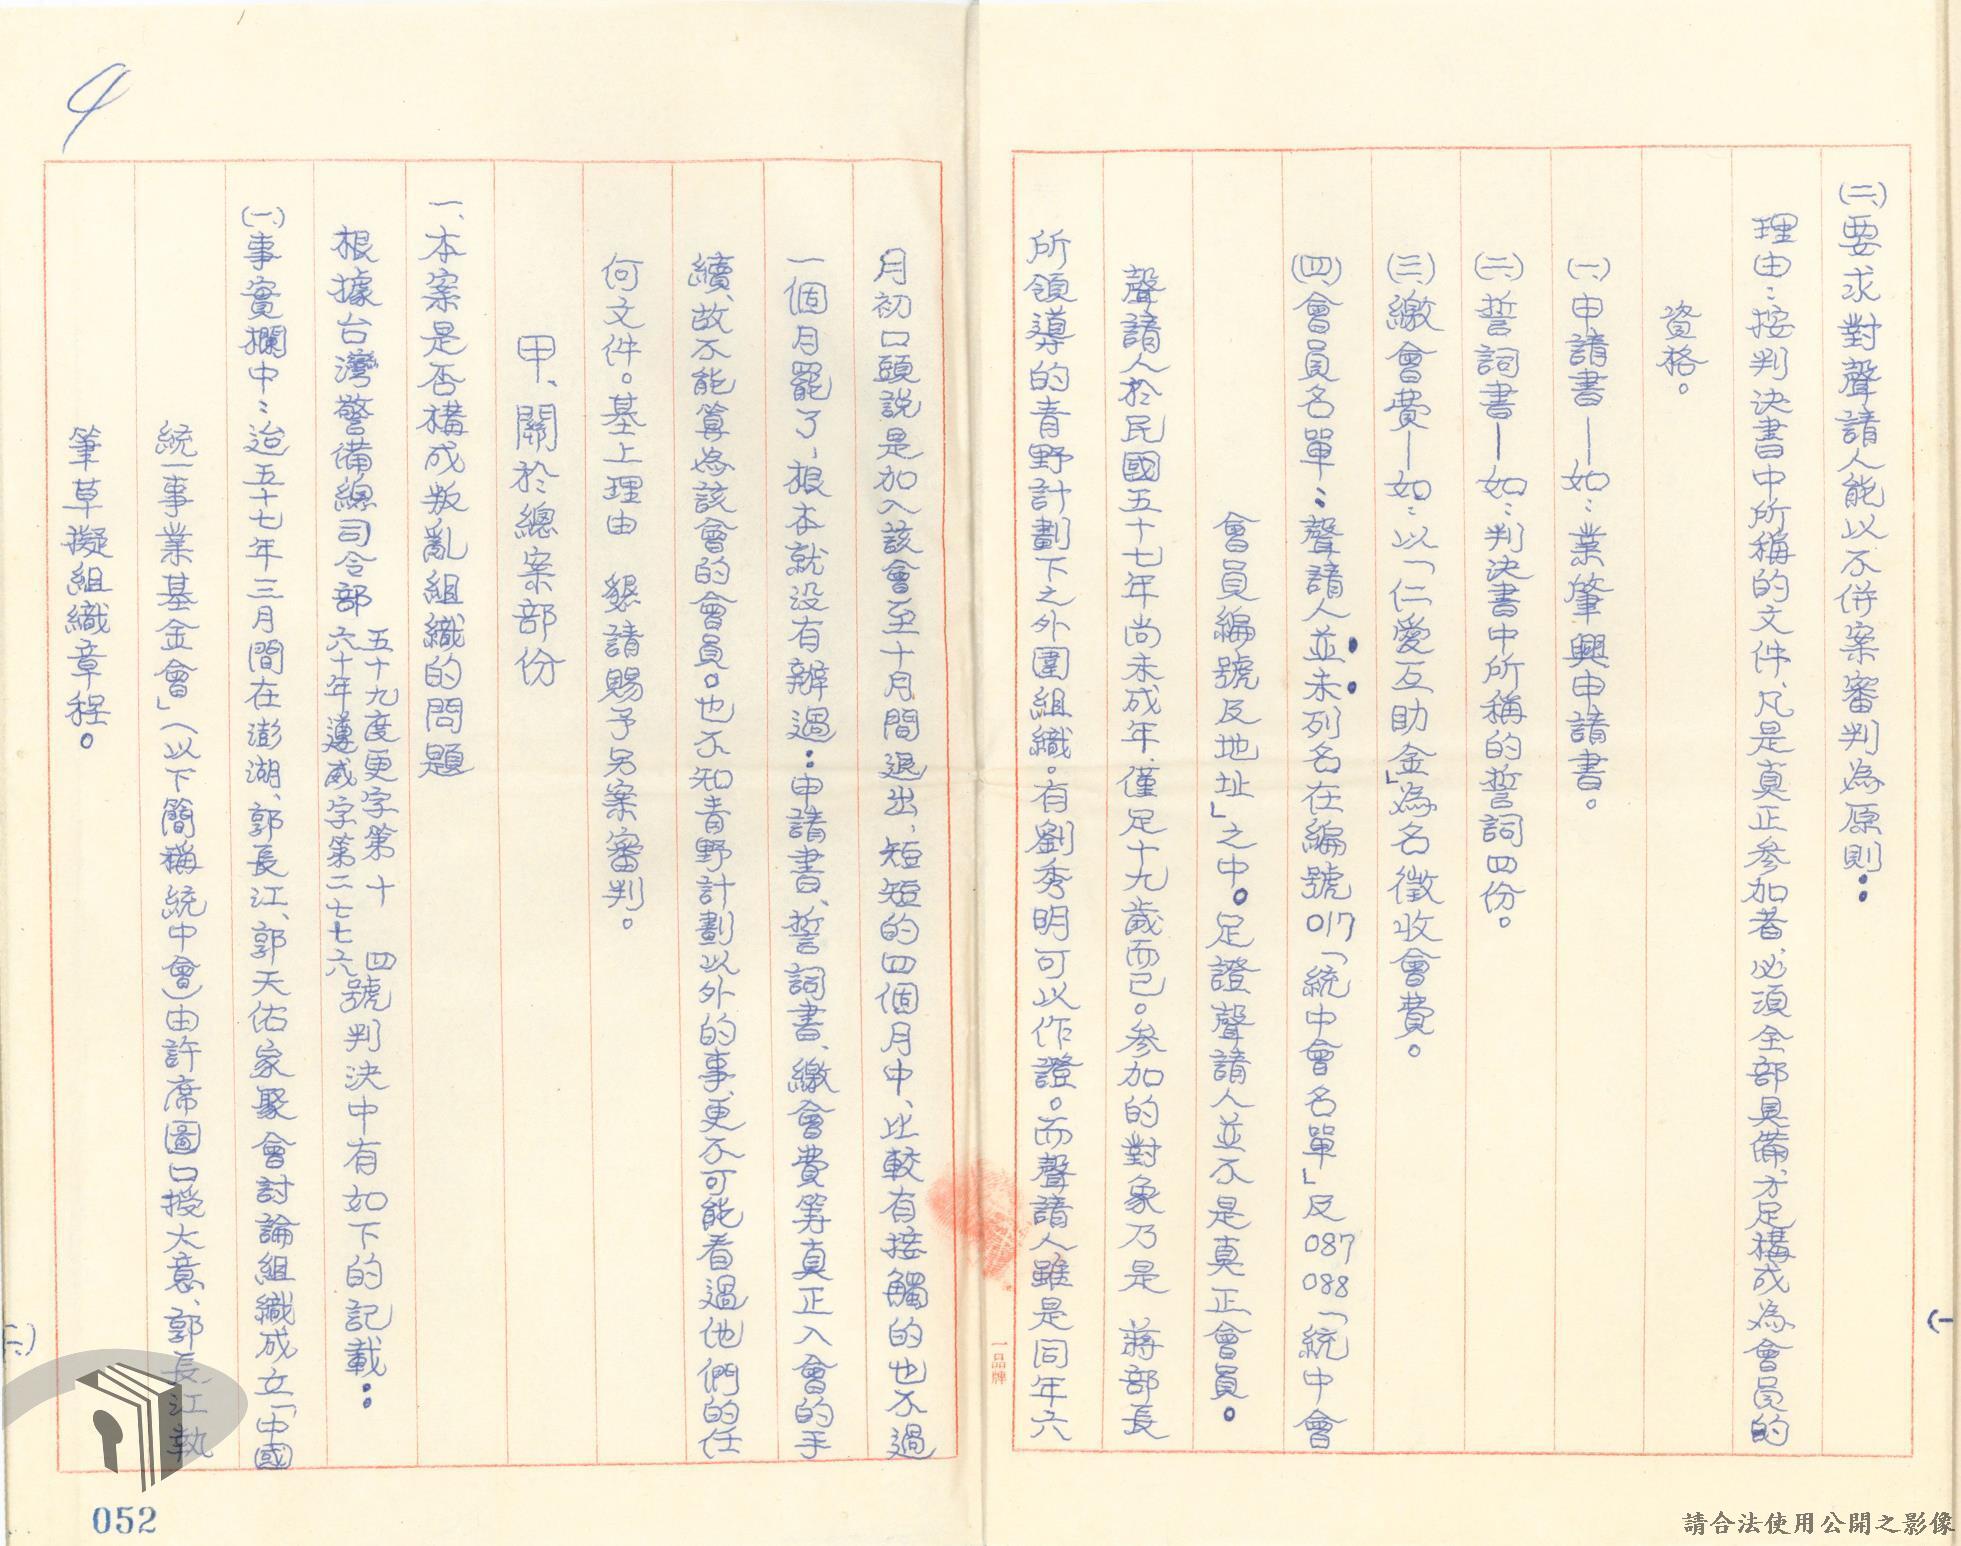 (二)要求對聲請人能以不併案審判為原則：
理由：按判決書中所稱的文件、凡是真正參加者、必須全部具備、方足構成為會員的
資格。
(一)申請書——如：業肇興申請書。
(二)誓詞書——如：判決書中所稱的誓詞四份。
(三)繳會費——如：以「仁愛互助金」為名徵收會費。
(四)會員名單：聲請人並未列名在編號017「統中會名單」及087 088「統中會
會員編號及地址」之中。足證聲請人並不是真正會員。
聲請人於民國五十七年尚未成年、僅足十九歲而已。參加的對象乃是 蔣部長
所領導的青野計劃下之外圍組織。有劉秀明可以作證。而聲請人雖是同年六
月初口頭說是加入該會至十月間退出、短短的四個月中、比較有接觸的也不過
一個月罷了，根本就没有辦過：申請書、誓詞書、繳會費等真正入會的手
續、故不能算為該會的會員。也不知青野計劃以外的事、更不可能看過他們的任
何文件。基上理由 懇請賜予另案審判。
甲、關於總案部份
一、本案是否構成叛亂組織的問題
根據台灣警備總司令部五十九度更字第十四號六十年蓮威字第二七七六號判決中有如下的記載：
(一)事實欄中：迨五十七年三月間在澎湖、郭長江、郭天佑家聚會討論組織成立「中國
統一事業基金會」（以下簡稱統中會）由許席圖口授大意、郭長江執
筆草擬組織章程。
(一
(二)
4
052
一品牌
請合法使用公開之影像